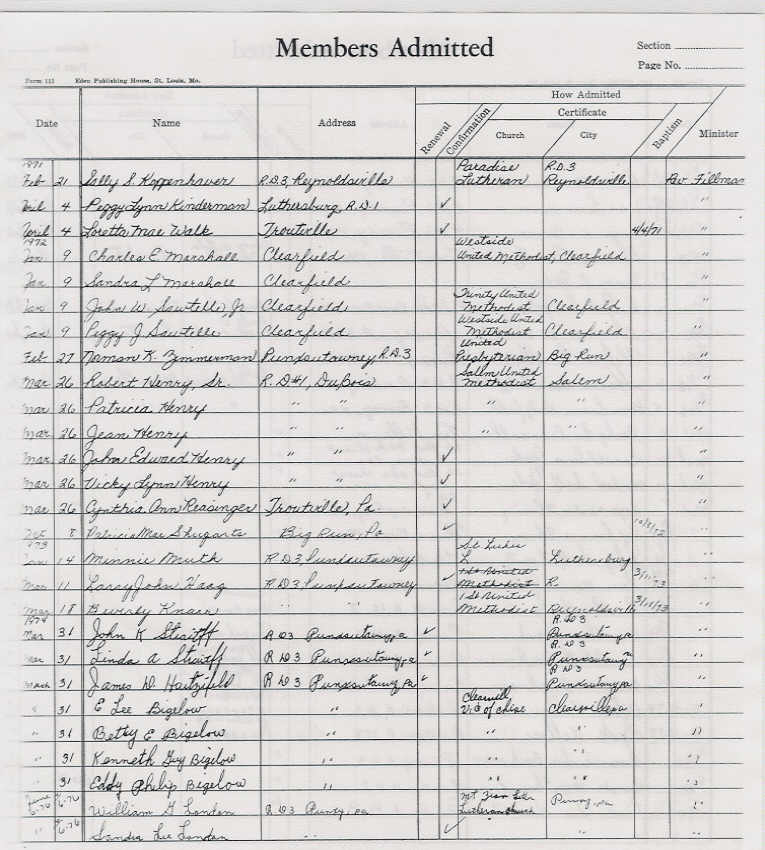 Members Admitted
Section
Page No.
Form 111 Eden Publishing House, St. Louis, Mo.
How Admitted
Certificate
Date Name Address Renewal Confirmation Church City Baptism Minister
1971 Paradise R.D.3
Feb 21 Sally S. Koppenhaver R.D.3, Reynoldsville Lutheran Reynoldsville Rev. Fillman
4 Peggy Lynn Kinderman Luthersburg, R.D.1 ✓ "
April 4 Loretta Mae Walk Troutville ✓ 4/4/71 "
1972 Westside
Jan 9 Charles E. Marshall Clearfield United Methodist, Clearfield "
Jan 9 Sandra L. Marshall Clearfield "
Trinity United
Jan 9 John W. Sawtelle, Jr. Clearfield Methodist Clearfield "
Westside United
Jan 9 Peggy J. Sawtelle Clearfield Methodist Clearfield "
United
Feb 27 Naman K. Zimmerman Punxsutawney R.D.3 Presbyterian Big Run "
Salem United
Mar 26 Robert Henry, Sr. R.D#1, DuBois Methodist Salem "
Mar 26 Patricia Henry " " " " "
Mar 26 Jean Henry " " " " "
Mar 26 John Edward Henry " " ✓ "
Mar 26 Vicky Lynn Henry " " ✓ "
Mar 26 Cynthia Ann Reasinger Troutville, Pa. ✓ "
Oct 8 Patricia Mae Shugarts Big Run, Pa ✓ 10/8/72 "
1973 St. Lukes
Jan 14 Minnie Muth R.D3, Punxsutawney L. Luthersburg "
1st United
Mar 11 Larry John Haag R.D3, Punxsutawney ✓ Methodist R. 3/11/73 "
1st United
Mar 18 Beverly Knarr " " Methodist Reynoldsville 3/18/73 "
1974 R.D3
Mar 31 John K R D3 Punxsutawny, pa ✓ Punxsutawny, pa "
R.D3
Mar 31 Linda A R D3 Punxsutawny, pa ✓ Punxsutawny "
R D3
March 31 James D Hartzfeld R D3 Punxsutawny, pa ✓ Punxsutawny, pa "
" 31 E Lee Bigelow " Clearville, pa "
" 31 Betty E Bigelow " " " "
" 31 Kenneth Guy Bigelow " " " "
" 31 Eddy Philip Bigelow " " " "
June 6-76 William G London R D3 Punxy, pa Mt. Zion Luth. Punxy, pa "
" 6-76 Sandra Lee London ✓ " "